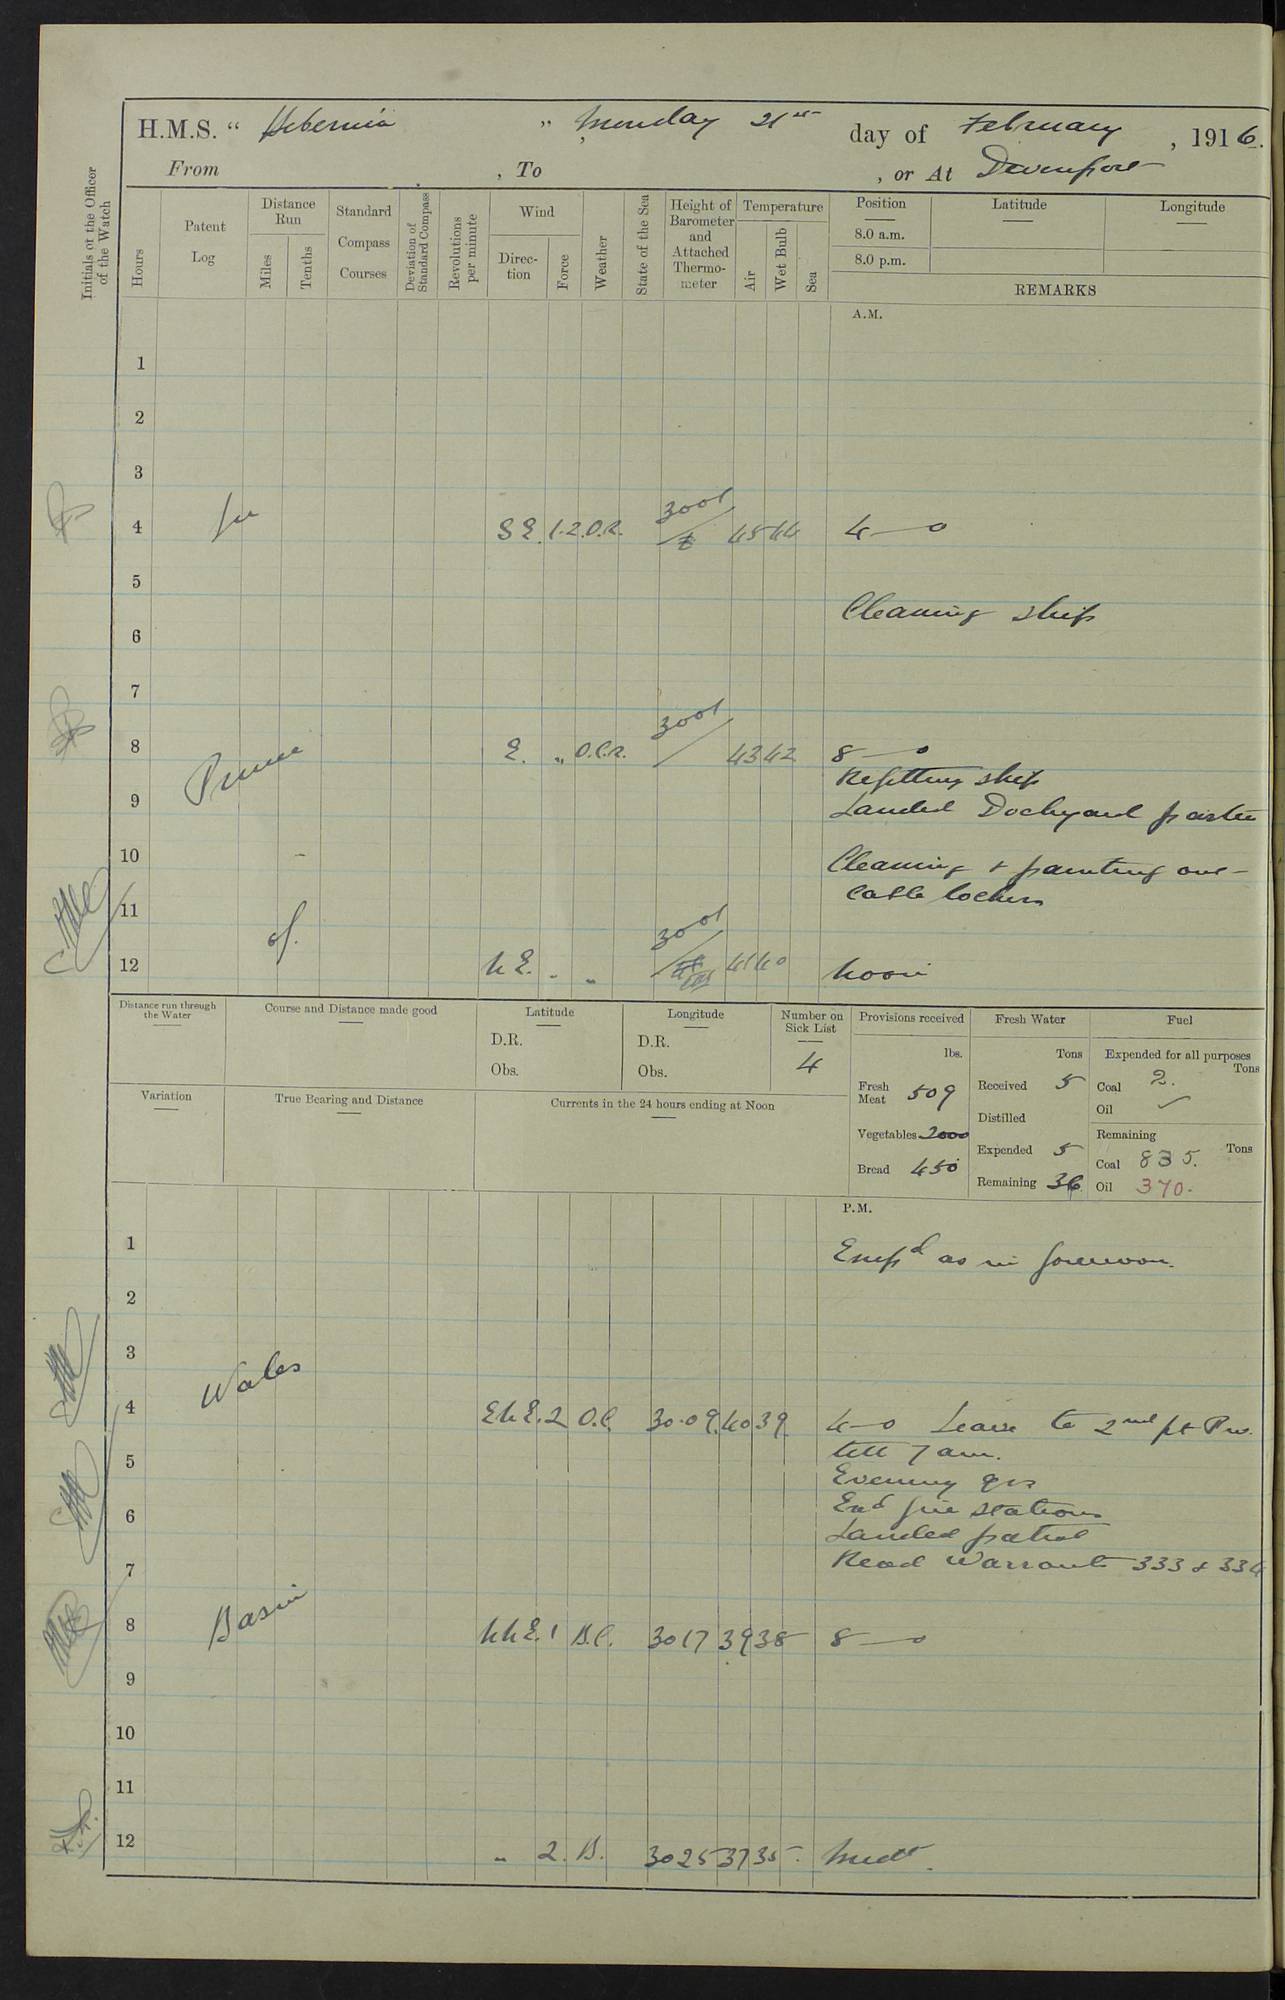 H.M.S. “ Hibernia ” Monday 21st day of February , 1916.
From , To , or At Devonport
Initials of the Officer of the Watch
Hours
Patent Log
Distance Run
Miles
Tenths
Standard Compass Courses
Deviation of Standard Compass
Revolutions per minute
Wind
Direction
Force
Weather
State of the Sea
Height of Barometer and Attached Thermometer
Temperature
Air
Wet Bulb
Sea
Position Latitude Longitude
8.0 a.m.
8.0 p.m.
REMARKS
A.M.
1
2
3
4 In SE. 1.2. O.R. 3001 45 44 4—0
5
Cleaning ship
6
7
8 Prince E. „ O.C.R. 3001 43 42 8—0
Refitting ship
9 Landed Dockyard parties
10 Cleaning & painting out
cable lockers
11
12 of. NE. „ „ 3001 41 40 Noon
Distance run through the Water
Course and Distance made good
Latitude
D.R.
Obs.
Longitude
D.R.
Obs.
Number on Sick List
4
Provisions received
lbs.
Fresh Meat 509
Vegetables 2000
Bread 450
Fresh Water
Tons
Received 5
Distilled
Expended 5
Remaining 36
Fuel
Expended for all purposes
Tons
Coal 2.
Oil ✓
Remaining
Tons
Coal 835.
Oil 370.
Variation
True Bearing and Distance
Currents in the 24 hours ending at Noon
P.M.
1 Empd as in forenoon.
2
3
4 Wales ENE. 2 O.C. 30.09 40 39 4—0 Leave to 2nd pt Pw.
till 7 am.
5 Evening qrs
6 Exd fire stations
Landed patrol
7 Read Warrants 333 & 334
8 Basin NNE. 1 B.C. 3017 39 38 8—0
9
10
11
12 „ 2. B. 3025 37 35. Midt.